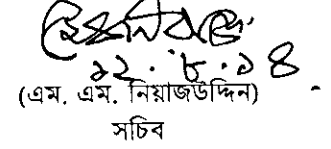 ১২.৮.১৪
(এম. এম. নিয়াজউদ্দিন)
সচিব